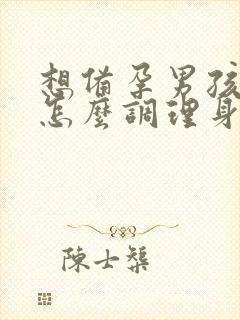 想備孕男孩
怎麼調理身
陳士棻